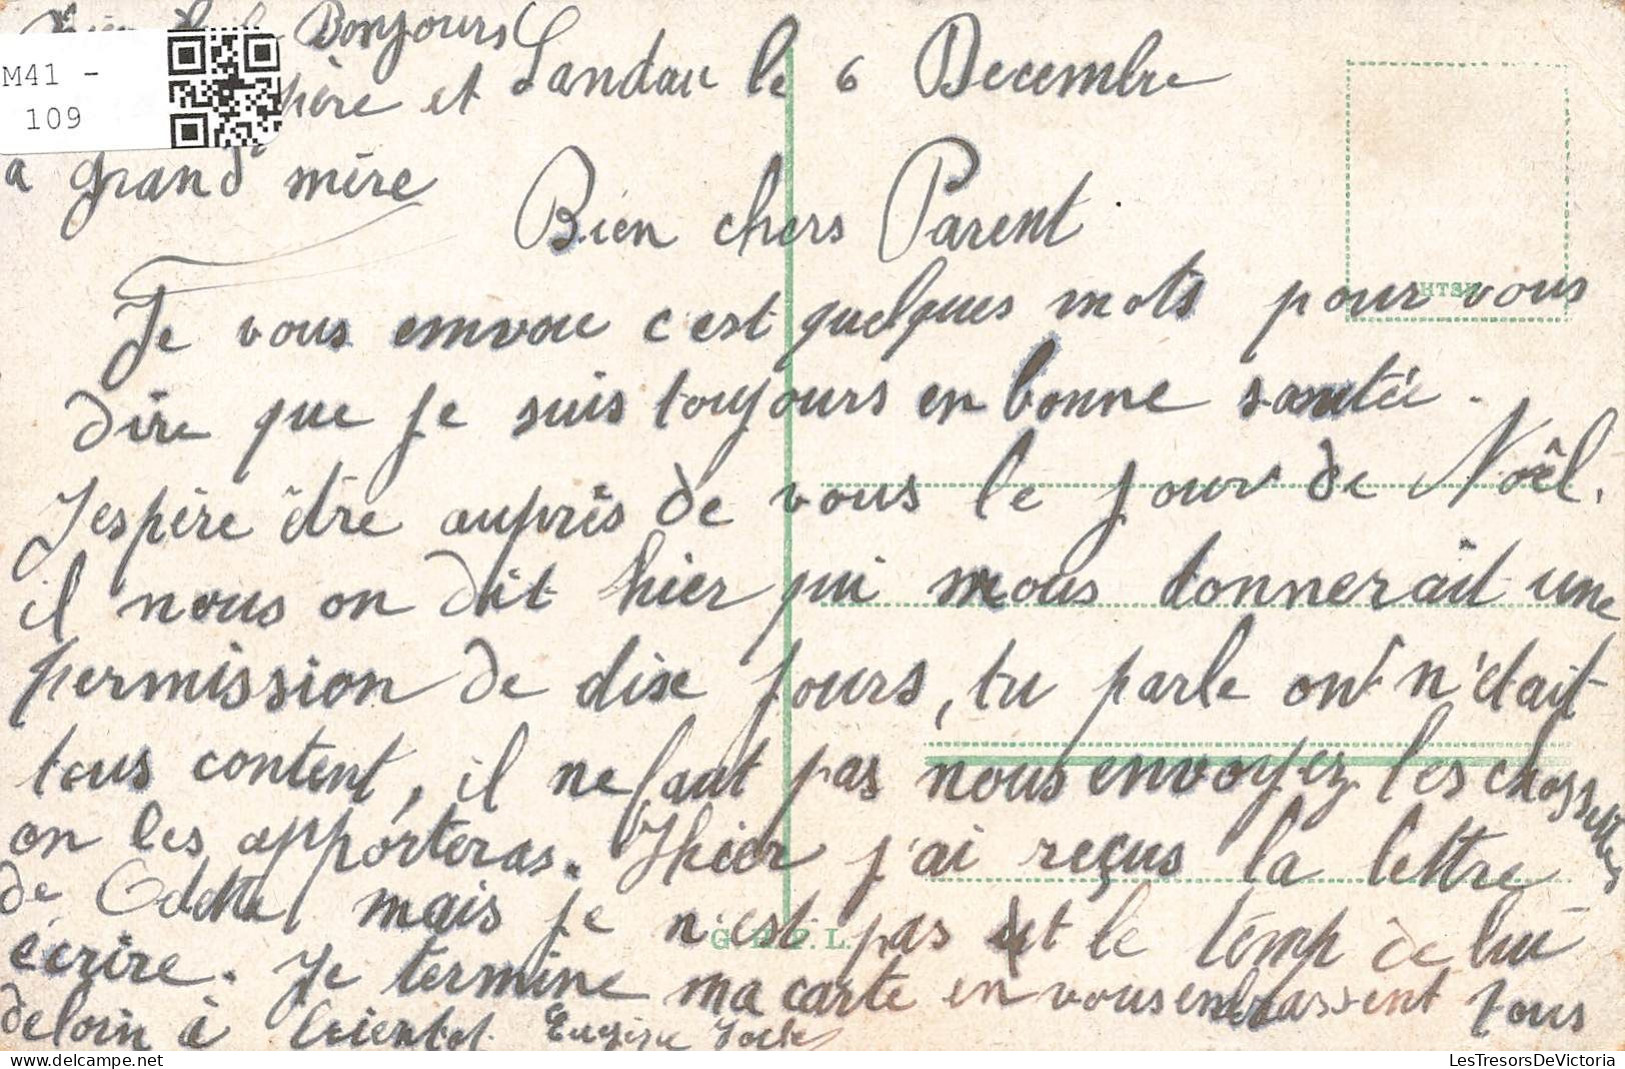 Bonjours
M41 -
109
père et
a grand mère
Landau le 6 Decembre
Bien chers Parent
Je vous emvoie c'est quelques mots pour vous
dire que je suis toujours en bonne santée.
J'espère être auprès de vous le jour de Noël.
il nous on dit hier qui nous donnerait une
permission de dix jours, tu parle ont n'était
tous content, il ne faut pas nous envoyez les chossettes
on les apporteras. Hier j'ai reçus la lettre
de Odette mais je n'est pas et le temp de lui
écrire. Je termine ma carte en vous embrassent tous
de loin à bientot. Eugène
G. P. L.
LesTresorsDeVictoria